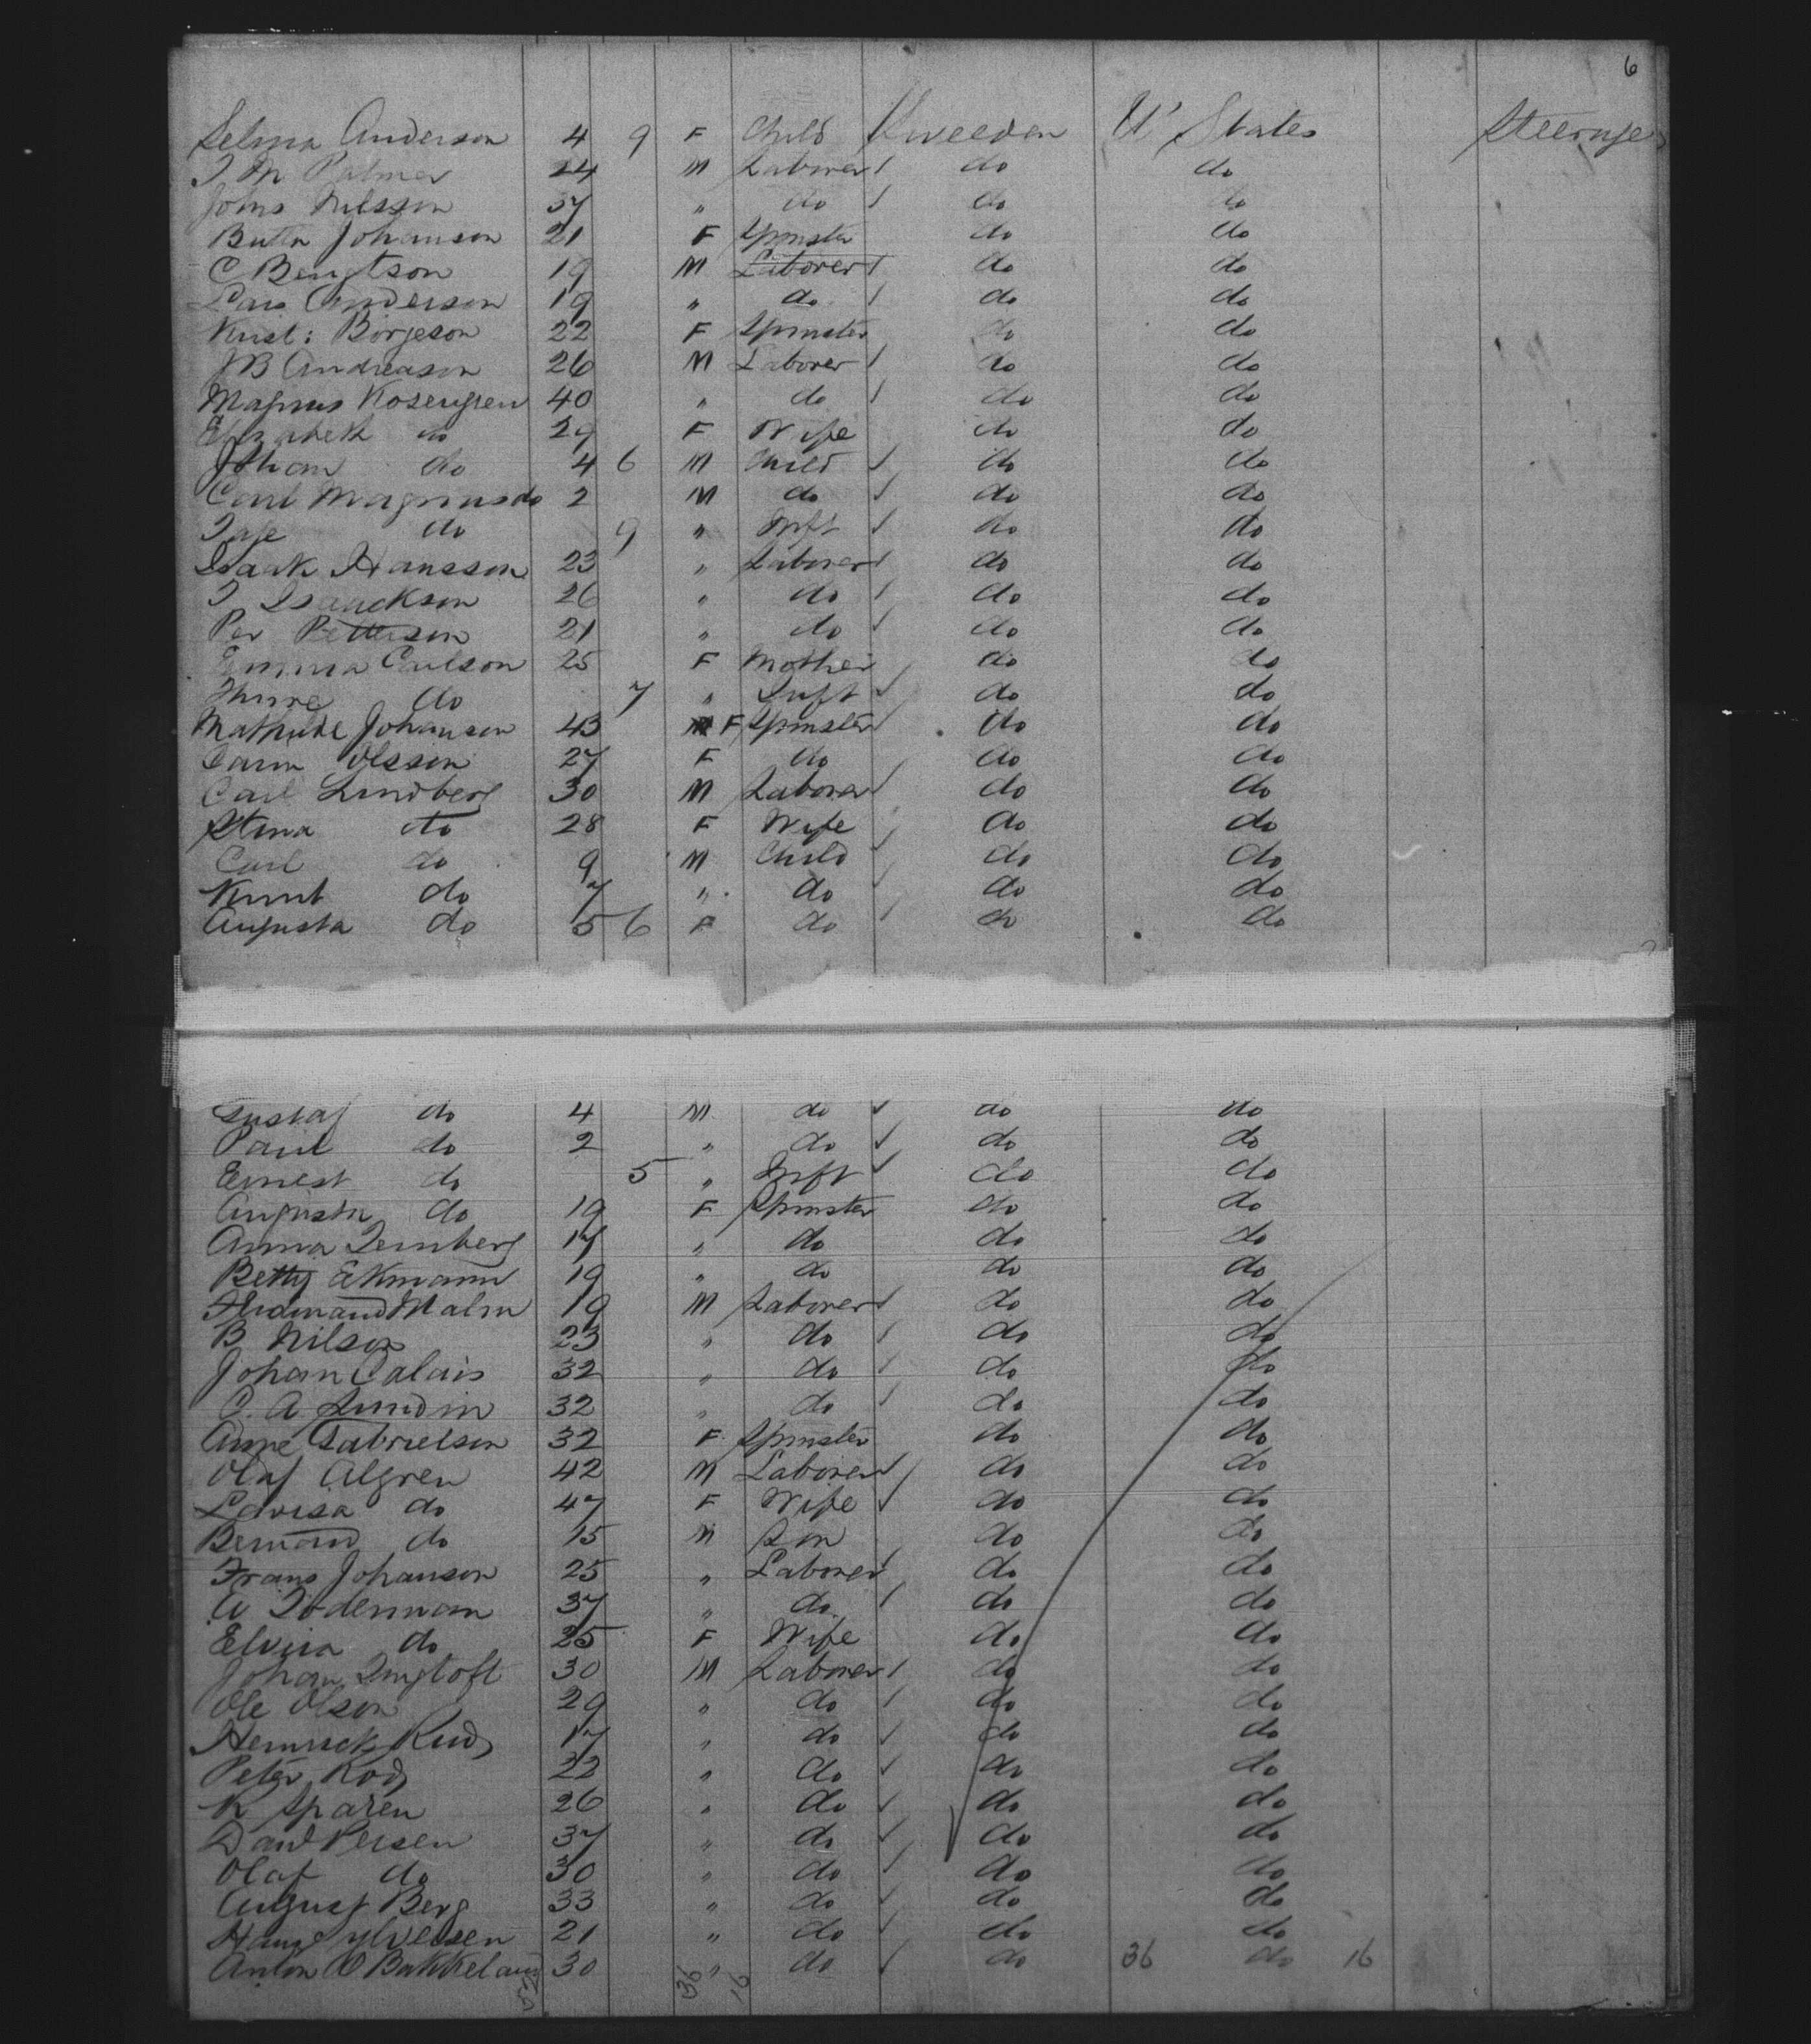 6
Selma Anderson 4 9 F Child Sweeden U' States Steerage
J M Palmer 24 M Laborer do do
Johs Nilsson 37 " do do do
Butta Johanson 21 F Spinster do do
C Bengtson 19 M Laborer do do
Lars Anderson 19 " do do do
Krist: Börjeson 22 F Spinster do do
J B Andreason 26 M Laborer do do
Magnus Rosengren 40 " do do do
Elizabeth do 29 F Wife do do
Johan do 4 6 M Child do do
Carl Magnus do 2 M do do do
Tage do 9 " Inft do do
Isaak Hansson 23 " Laborer do do
J Isaackson 26 " do do do
Per Petterson 21 " do do do
Emma Carlson 25 F Mother do do
Thure do 7 " Inft do do
Mathilde Johanson 43 F Spinster do do
Carin Olsson 27 F do do do
Carl Lindberg 30 M Laborer do do
Stina do 28 F Wife do do
Carl do 9 M Child do do
Knut do 7 " do do do
Augusta do 5 6 F do do do
Gustaf do 4 M do do do
Paul do 2 " do do do
Ernest do 5 " Inft do do
Augusta do 19 F Spinster do do
Anna Ternberg 17 " do do do
Betty Ekmann 19 " do do do
Ferdinand Malm 19 M Laborer do do
B Nilson 23 " do do do
Johan Calais 32 " do do do
C. A Lundin 32 " do do do
Anne Gabrielson 32 F Spinster do do
Olaf Algren 42 M Laborer do do
Lovisa do 47 F Wife do do
Bernard do 15 M Son do do
Frans Johanson 25 " Laborer do do
A Söderman 37 " do do do
Elvira do 25 F Wife do do
Johan Ingloft 30 M Laborer do do
Ole Olson 29 " do do do
Henrick Rud 17 " do do do
Peter Rod 22 " do do do
K Sparen 26 " do do do
David Persen 37 " do do do
Olaf do 30 " do do do
August Berg 33 " do do do
Hans Ylvesen 21 " do do do
Anton O Bakkeland 30 " do do 36 do 16
52 36 16